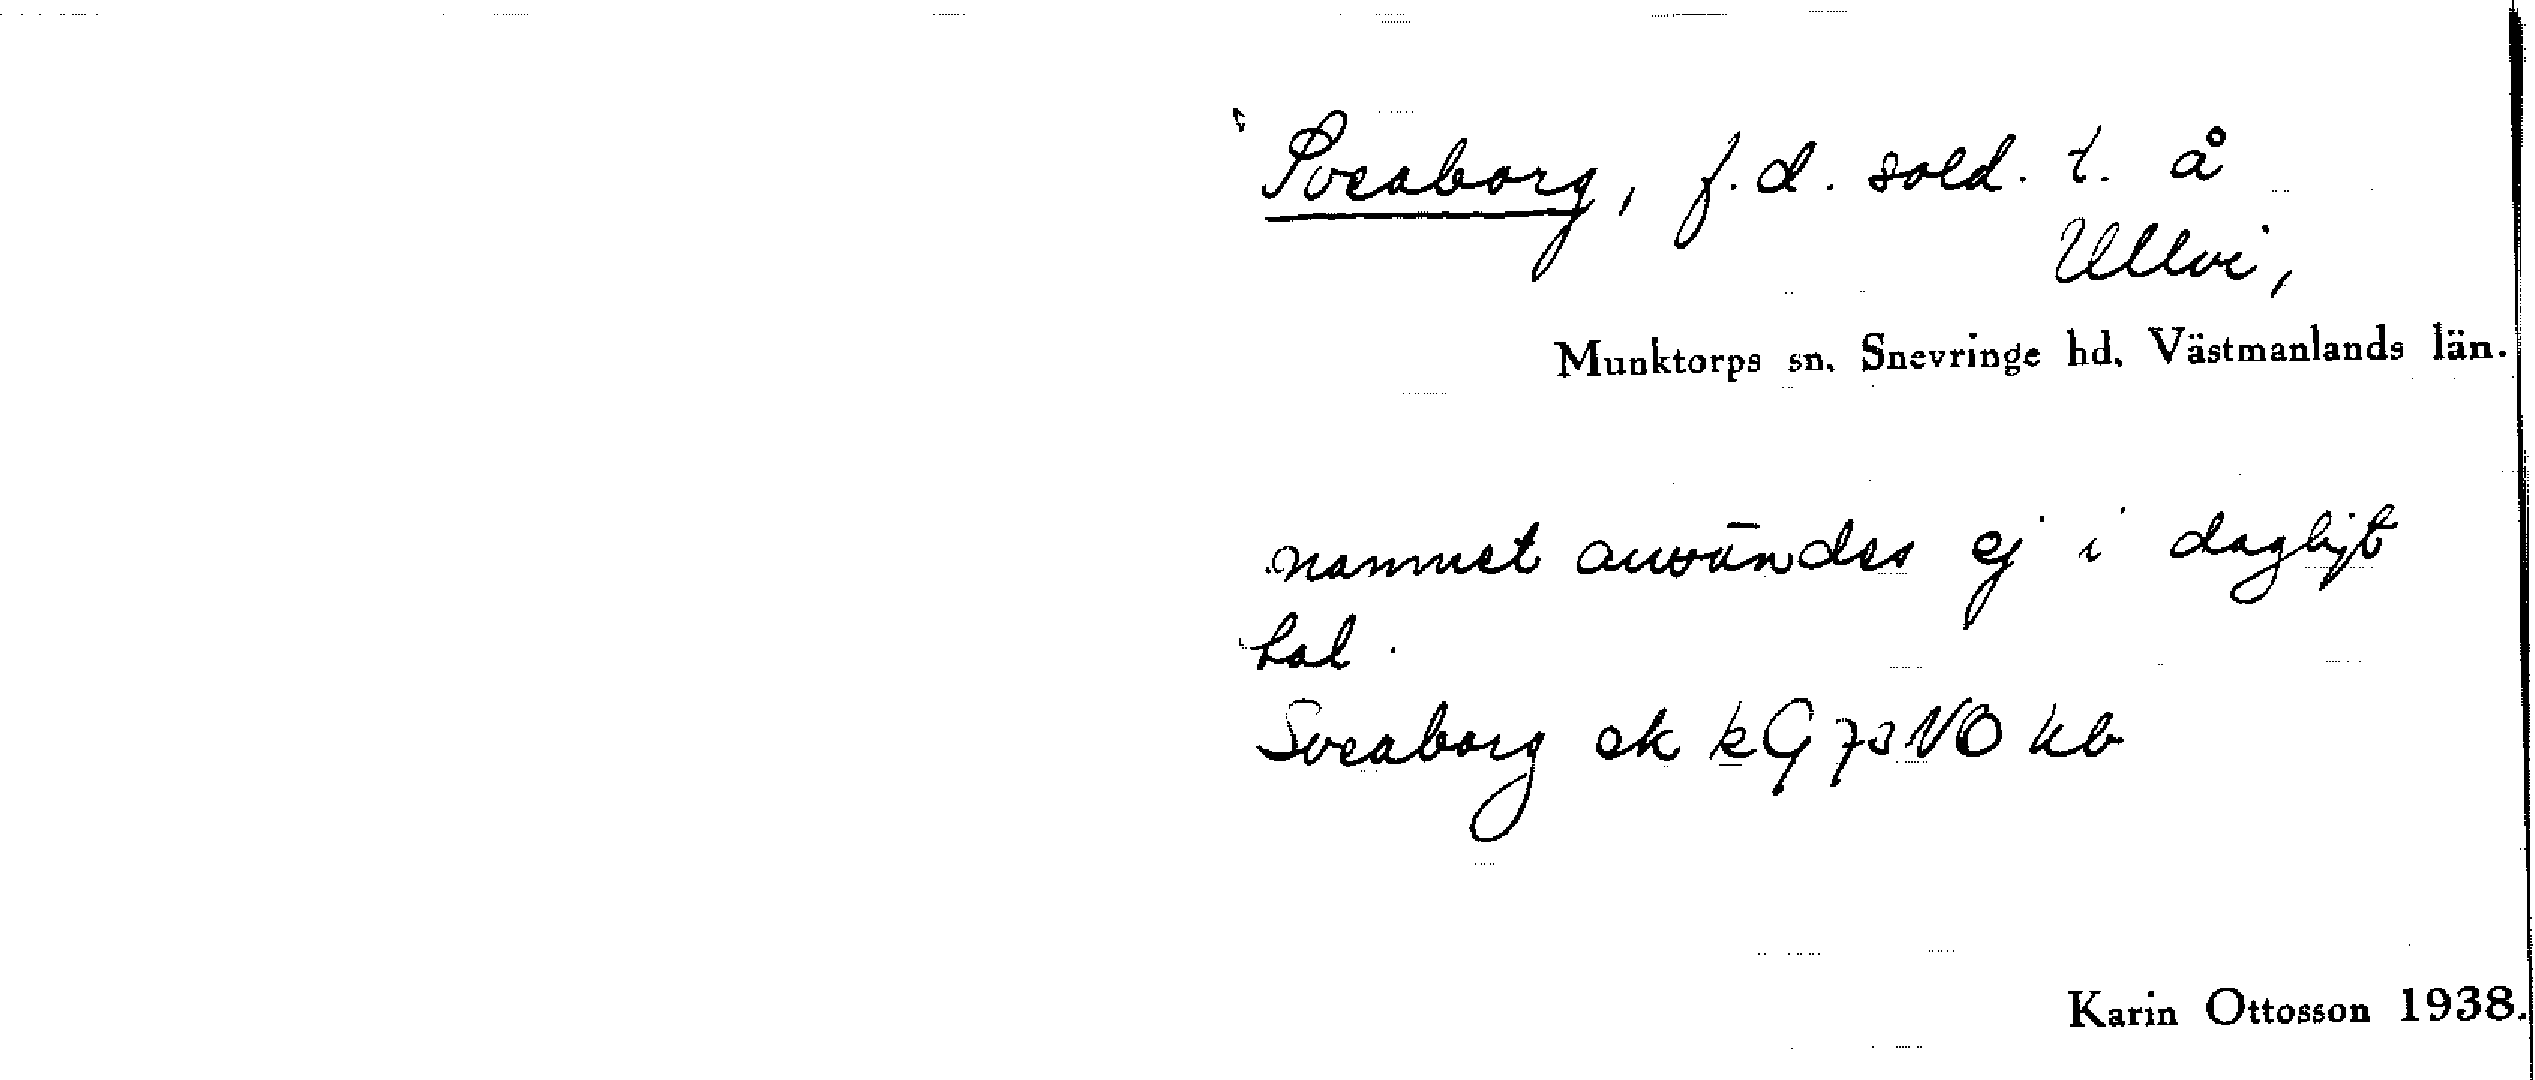 Sveaborg, f.d. sold. t. å
Ullvi,
Munktorps sn. Snevringe hd. Västmanlands län.
namnet användes ej i dagligt
tal.
Sveaborg ek kG 73 NO kb
Karin Ottosson 1938.